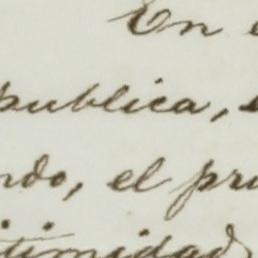 En
publica,
ndo, el pri
itimidad